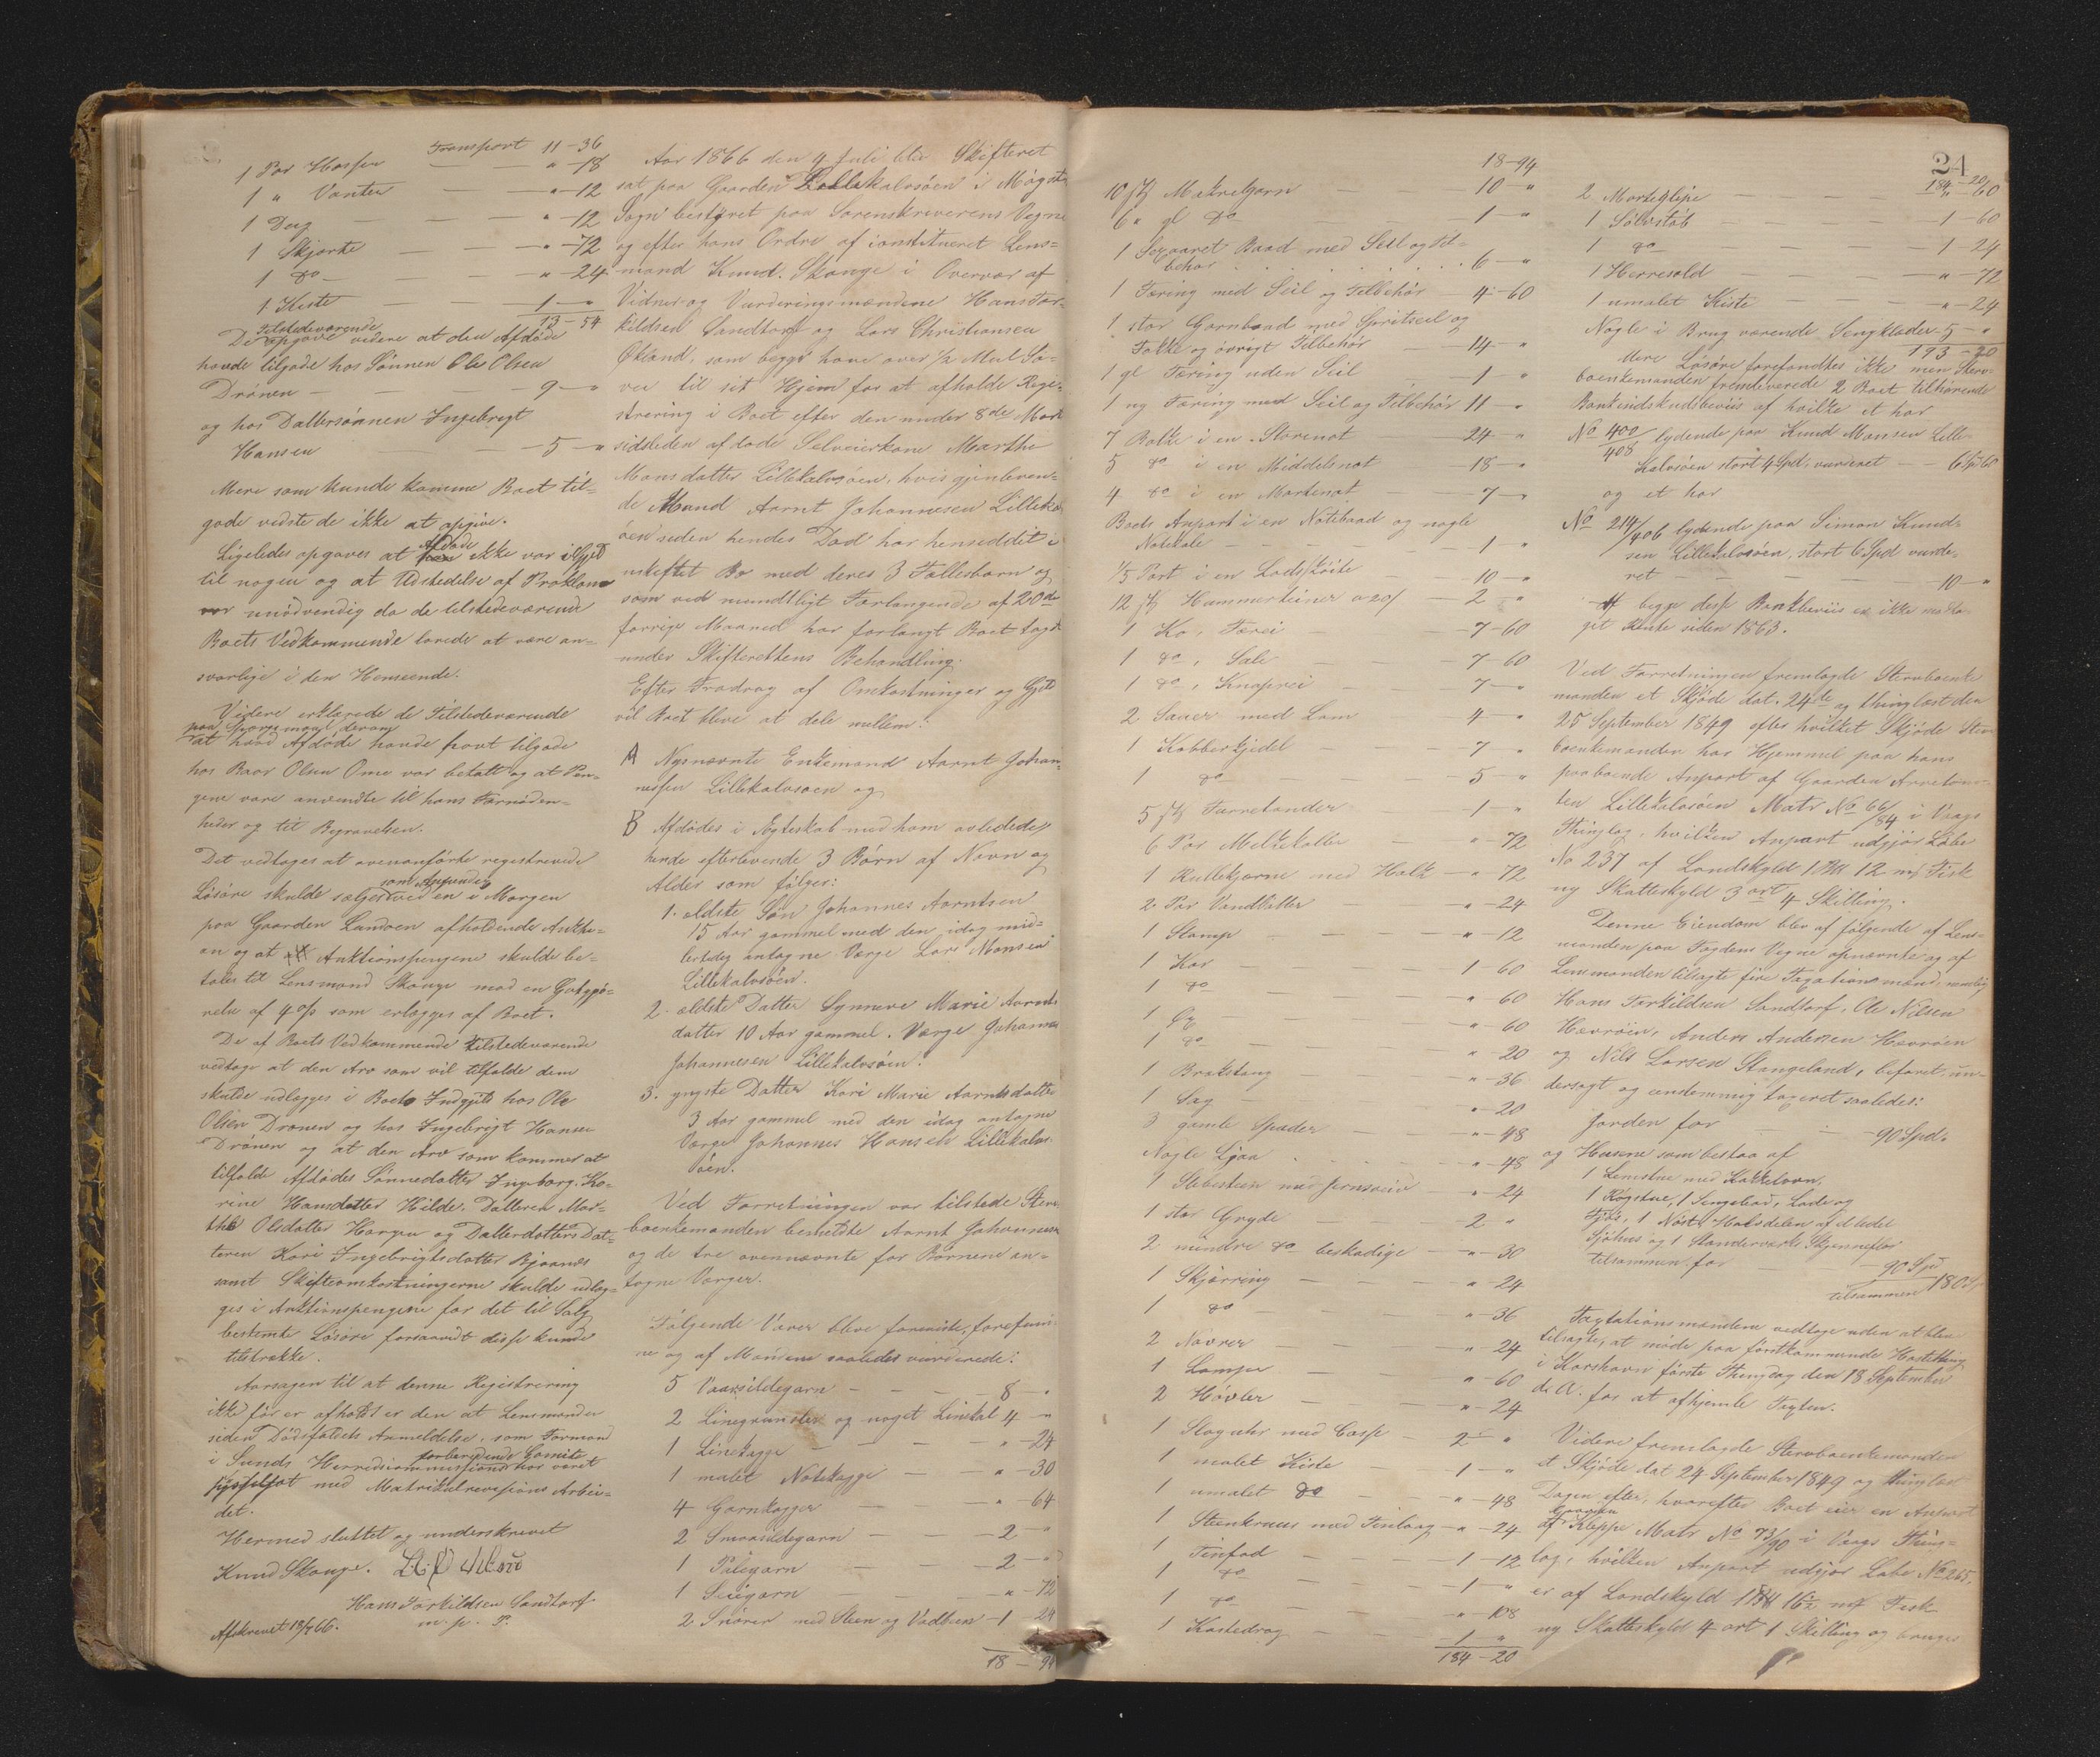 Transport 11-36
1 Par Hosser — " -18
1 " Vanter — — "-12
1 Dug — — "-12
1 Skjorte — — "-72
1 do — — "-24
1 Kiste — — 1-"
13-54
Tilstedeværende
De opgave videre at den Afdøde
havde tilgode hos Sønnen Ole Olsen
Drønen — — 9-"
og hos Dattersønnen Ingebrigt
Hansen — 5-"
Mere som kunde komme Boet til-
gode vidste de ikke at opgive.
Afdøde
Ligeledes opgaves at ikke var i Gjeld
til nogen og at Udstedelse af Proklama
var unödvendig da de tilstedeværende
Boets Vedkommende lovede at være an-
svarlige i den Henseende.
Videre erklærede de Tilstedeværende
paa Spørgsmaal derom
at hvad Afdøde havde havt tilgode
hos Baar Olsen Ome var betalt og at Pen-
gene vare anvendte til hans Fornöden-
heder og til Begravelsen.
Det vedtoges at ovenanförte registrerede
Lösöre skulde sælges ved en i Morgen
paa Gaarden Landøen afholdende Auktio-
on og at Auktionspengene skulde be-
tales til Lensmand Skauge mod en Godtgjö-
relse af 4 o/o som erlægges af Boet.
De af Boets Vedkommende tilstedeværende
vedtoge at den Arv som vil tilfalde dem
skulde udlægges i Boets Indgjeld hos Ole
Olsen Drønen og hos Ingebrigt Hansen
Drønen og at den Arv som kommer at
tilfalde Afdødes Sønnedatter Ingeborg Ka-
rine Hansdatter Hilde, Datteren Mar-
the Olsdatter Haugen og Datterdatters Dat-
teren Kari Ingebrigtsdatter Bjaanes
samt Skifteomkostningerne skulde udlæg-
ges i Auktionspengene for det til Salg
bestemte Lösöre forsaavidt disse kunde
tilstrække.
Aarsagen til at denne Registrering
ikke för er afholdt er den at Lensmanden
siden Dödsfaldets Anmeldelse, som Formand
forberedende Comite
i Sunds Herredscommission har været
sysselsat med Matrikulrevisions Arbei-
det.
Hermed sluttet og underskrevet
Knud Skauge.
Hans Torkildsen Sandtorf
m. p. P.
Afskrevet 18/7 66.
Aar 1866 den 4 Juli blev Skifteret
sat paa Gaarden Lillekalvsöen i Mögster
Sogn bestyret paa Sorenskriverens Vegne
og efter hans Ordre af constitueret Lens-
mand Knud Skauge i Overvær af
Vidner og Vurderingsmændene Hans Tor-
kildsen Sandtorf og Lars Christiansen
Økland, som begge have over ½ Miil Sö-
vei til sit Hjem for at afholde Regi-
strering i Boet efter den under 8de Marts
sidstleden afdöde Selveierkone Marthe
Monsdatter Lillekalvsöen, hvis gjenleven-
de Mand Aarnt Johannesen Lillekalvs-
öen siden hendes Död har henseddet i
uskiftet Bo med deres 3 Fællesbørn og
som ved mundtligt Forlangende af 20de
forrige Maaned har forlangt Boet taget
under Skifterettens Behandling.
Efter Fradrag af Omkostninger og Gjeld
vil Boet blive at dele mellem:
A Nysnævnte Enkemand Aarnt Johan-
nesen Lillekalvsøen og
B Afdödes i Ægteskab med ham avlede
hende efterlevende 3 Börn af Navn og
Alder som fölger:
1. eldste Sön Johannes Aarntsen
15 Aar gammel med den idag mid-
lertidig antagne Værge Lars Monsen
Lillekalvsöen.
2. ældste Datter Synneve Marie Aarnts-
datter 10 Aar gammel. Værge Johannes
Johannesen Lillekalvsöen.
3. yngste Datter Kari Marie Aarntsdatter
3 Aar gammel med den idag antagne
Værge Johannes Hansen Lillekalvs-
öen.
Ved Forretningen var tilstede Sterv-
boenkemanden bemeldte Aarnt Johannesen
og de tre ovennævnte for Börnene an-
tagne Værger.
Fölgende Varer bleve foreviste, forefun-
ne og af Mændene saaledes vurderede:
5 Vaarsildegarn — — 8-"
2 Linegrunster og noget Linetal 4-"
1 Linekagge — — "-24
1 malet Notekagge — — "-30
4 Garnkagger — — "-64
2 Smaasildegarn — — 2-"
1 Palegarn — — 2-"
1 Seiegarn — — "-72
2 Snörer med Steen og Vadbeen 1-24
18-94
24
18-94
10 Stk Makrelgarn — — 10-"
6 " gl do — — 1-"
1 Sexaaret Baad med Seil og Til-
behör . . . . . 6-"
1 Færing med Seil og Tilbehör — 4-60
1 stor Garnbaad med Spritseil og
Fokke og övrigt Tilbehör — 14-"
1 gl Færing uden Seil — 1-"
1 ny Færing med Seil og Tilbehör 11-"
7 Bolke i en Storenot — 24-"
5 do i en Middelsnot — 18-"
4 do i en Mortenot — 7-"
Boets Anpart i en Notebaad og nogle
Notekole — — 1-"
1/5 Part i en Lodsskøite — 10-"
12 Stk Hummerteiner a 20 s — 2-"
1 Ko, Færei — 7-60
1 do, Sale — 7-60
1 do, Knaprei — 7-"
2 Sauer med Lam — 4-"
1 Kobberkjedel — 7-"
1 do — 5-"
5 Stk Tørretønder — 1-"
6 Par Melkekoller — "-72
1 Rullekjærne med Halk — "-72
2 Par Vandbötter — "-24
1 Stamp — "-12
1 Kar — 1-60
1 do — "-60
1 Øx — "-60
1 do — "-20
1 Brækstang — "-36
1 Sag — "-20
3 gamle Spader — "-48
Nogle Ljaa — "-48
1 Slebesteen med Jernsveiv — "-24
1 stor Gryde — 2-"
2 mindre do beskadige — "-30
1 Skjærring — "-24
1 do — "-36
2 Navrer — "-24
1 Lampe — "-60
2 Hövler — "-24
1 Slaguhr med Casse — 2-"
1 malet Kiste — 1-"
1 umalet do — "-48
1 Steenkruus med Tinlaag — "-24
1 Tinfad — 1-12
1 do — 1-"
1 do — "-108
1 Kastedrag — 1-"
184-20
184-20
2 Morteglepe — "-60
1 Sölvstöb — 1-60
1 do — 1-24
1 Herresold — "-72
1 umalet Kiste — "-24
Nogle i Brug værende Sengklæder 5-"
193-20
Mere Lösöre forefandtes ikke men Sterv-
boenkemanden fremleverede 2 Boet tilhörende
Bankindskudsbeviis af hvilke et har
No 400/408 lydende paa Knud Monsen Lille-
kalvsöen stort 4 Spd. vurderet — — 6 Spd 60
og et har
No 214/406 lydende paa Simon Knud-
sen Lillekalvsöen, stort 6 Spd vurde-
ret — — 10-"
Af begge disse Bankbeviis er ikke modta-
get Rente siden 1863.
Ved Forretningen fremlagde Stervboenke-
manden et Skjöde dat. 24de og thinglæst den
25 September 1849 efter hvilket Skjöde Sterv-
boenkemanden har Hjemmel paa hans
paaboende Anpart af Gaarden
Lillekalvsöen Matr No 66/84 i Vaags
Thinglag, hvilken Anpart udgjör Löbe
No 237 af Landskyld 1 12 mk Fisk
ny Skatteskyld 3 ort 4 Skilling.
Denne Eiendom blev af fölgende af Lens-
manden paa Fogdens Vegne opnævnte og af
Lensmanden tilsagte fire Taxationsmænd, nemlig
Hans Torkildsen Sandtorf, Ole Nilsen
Hevröen, Anders Andersen Hevröen
og Nils Larsen Stangeland, befaret, un-
dersögt og eenstemmig taxeret saaledes:
Jorden for — — 90 Spd.
og Husene som bestaa af
1 Lemstue med Kakkelovn,
1 Rögstue, 1 Sengebod, Lade og
Fjös, 1 Nöst, Halvdelen af et lidet
Sjöhus og 1 Standerværk
tilsammen for — 90 Spd
tilsammen 180 Spd
Taxtationsmændene vedtoge uden at blive
tilsagte, at møde paa förstkommende Höstething
i Korshavn förste Thingdag den 18 September
d. A. for at afhjemle Taxten.
Videre fremlagde Stervboenkemanden
et Skjöde dat 24 September 1849 og thinglæst
Dagen efter, hvorefter Boet eier en Anpart
Gaarden
af Kleppe Matr No 73/90 i Vaags Thing-
lag, hvilken Anpart udgjör Løbe No 265,
er af Landskyld 16½ mk Fisk
ny Skatteskyld 4 ort 1 Skilling og bruges